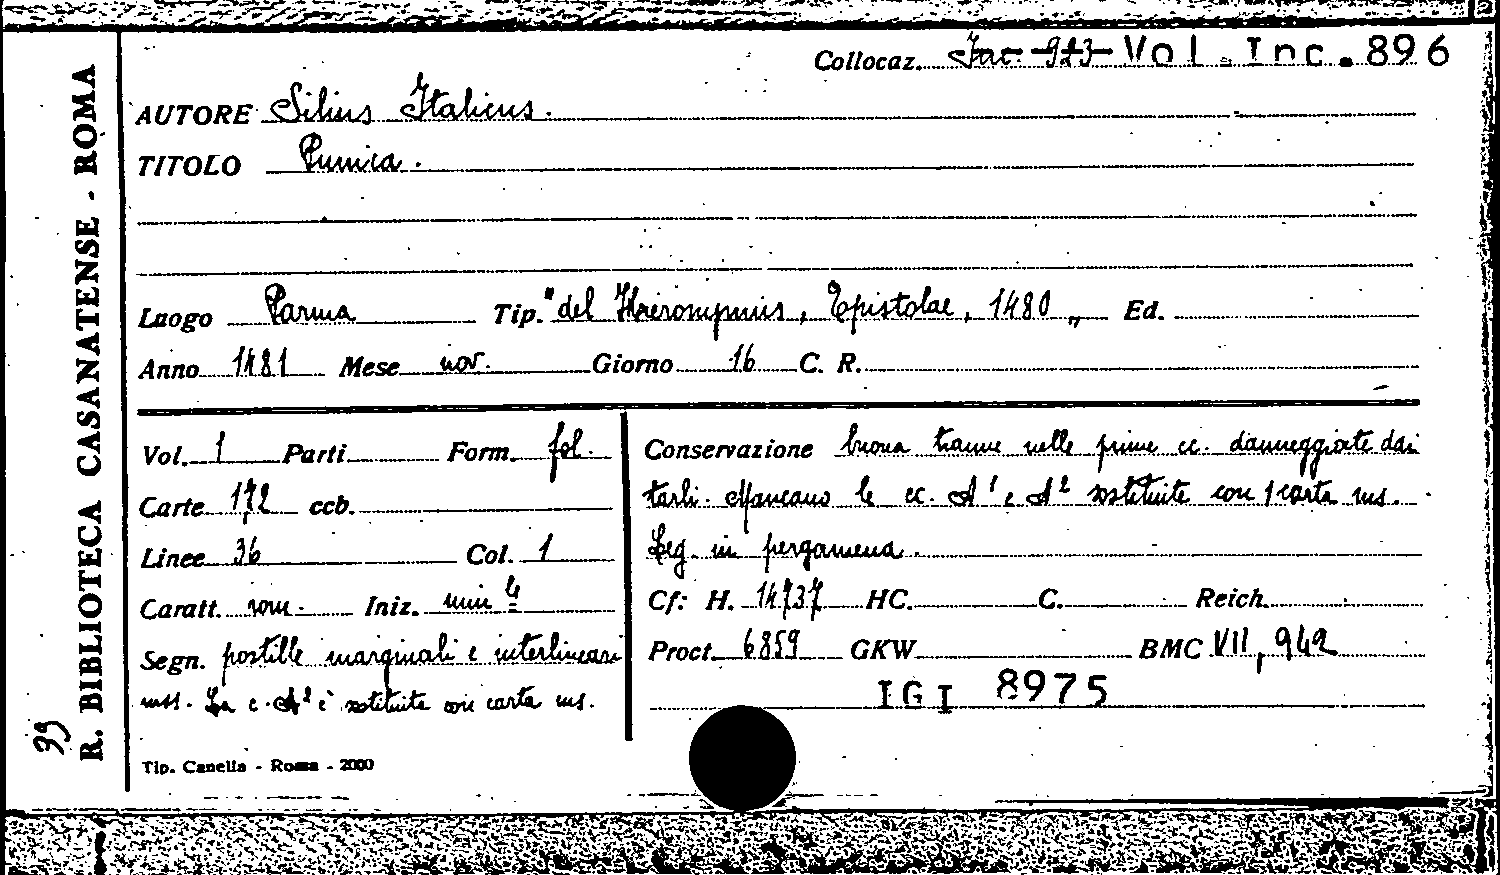 Collocaz. Inc. 923 Vol. Inc. 896
AUTORE Silius Italicus.
TITOLO Punica.
Luogo Parma Tip. "del Hieronymus, Epistolae, 1480„ Ed.
Anno 1481 Mese nov. Giorno 16 C. R.
Vol. 1 Parti Form. fol.
Carte 172 ccb.
Linee 36 Col. 1
Caratt. rom. Iniz. min.
Segn. postille marginali e interlineari
mss. La c. A² è sostituita con carta ms.
Conservazione buona tranne nelle prime cc. danneggiate dai
tarli. Mancano le cc. A¹ e A² sostituite con 1 carta ms.
Leg. in pergamena.
Cf: H. 14737 HC. C. Reich.
Proct. 6859 GKW BMC VII, 942
IGI 8975
Tip. Canella - Roma - 2000
R. BIBLIOTECA CASANATENSE - ROMA